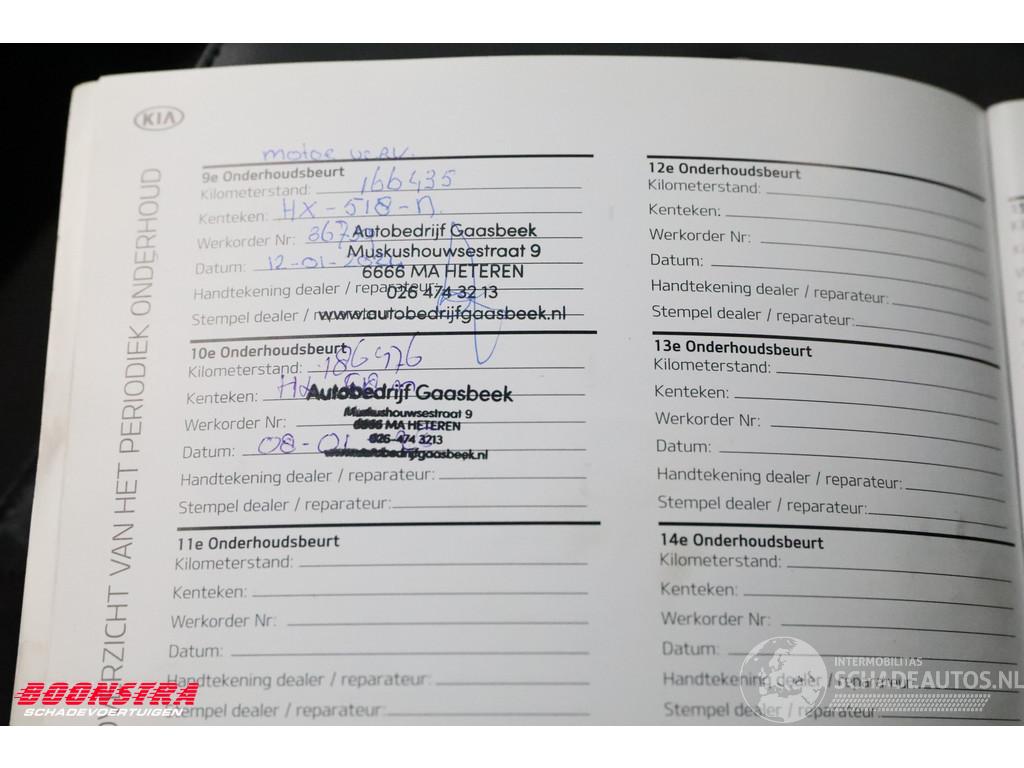 KIA
OVERZICHT VAN HET PERIODIEK ONDERHOUD
motor verv.
9e Onderhoudsbeurt
Kilometerstand: 166435
Kenteken: HX-518-N
Werkorder Nr:
Datum: 12-01-
Handtekening dealer / reparateur:
Stempel dealer / reparateur:
Autobedrijf Gaasbeek
Muskushouwsestraat 9
6666 MA HETEREN
026 474 32 13
www.autobedrijfgaasbeek.nl
10e Onderhoudsbeurt
Kilometerstand: 186476
Kenteken:
Werkorder Nr:
Datum: 08-01-
Autobedrijf Gaasbeek
Muskushouwsestraat 9
6666 MA HETEREN
026-474 3213
www.autobedrijfgaasbeek.nl
Handtekening dealer / reparateur:
Stempel dealer / reparateur:
11e Onderhoudsbeurt
Kilometerstand:
Kenteken:
Werkorder Nr:
Datum:
Handtekening dealer / reparateur:
Stempel dealer / reparateur:
12e Onderhoudsbeurt
Kilometerstand:
Kenteken:
Werkorder Nr:
Datum:
Handtekening dealer / reparateur:
Stempel dealer / reparateur:
13e Onderhoudsbeurt
Kilometerstand:
Kenteken:
Werkorder Nr:
Datum:
Handtekening dealer / reparateur:
Stempel dealer / reparateur:
14e Onderhoudsbeurt
Kilometerstand:
Kenteken:
Werkorder Nr:
Datum:
Handtekening dealer / reparateur:
Stempel dealer / reparateur:
BOONSTRA
SCHADEVOERTUIGEN
INTERMOBILITAS
SCHADEAUTOS.NL